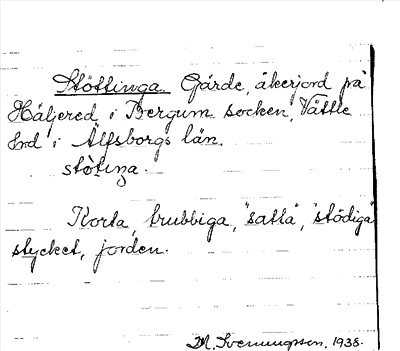 Stöttinga. Gärde, åkerjord på
Håljered i Bergum socken, Vättle
hrd i Älfsborgs län.
stòtiŋa.
Korta, trubbiga, "satta", "stödiga"
stycket, jorden.
M. Svenungsson. 1938.